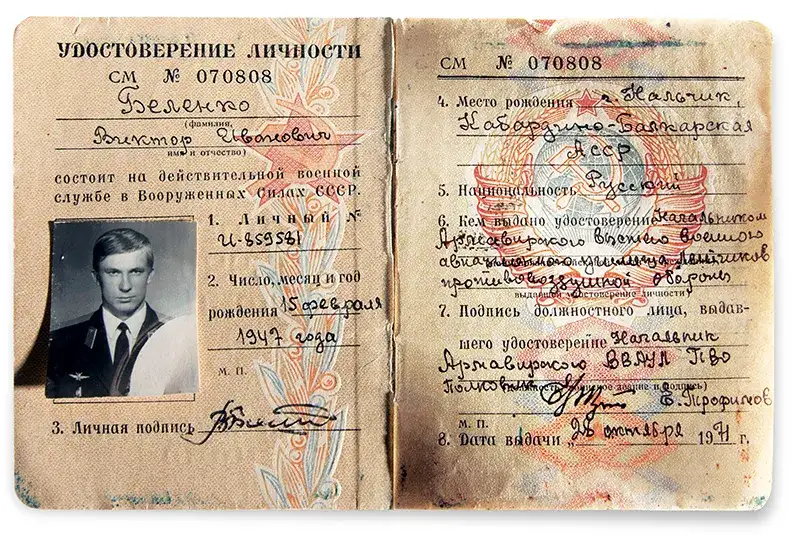 УДОСТОВЕРЕНИЕ ЛИЧНОСТИ
СМ № 070808
Беленко
(фамилия,
Виктор Иванович
имя и отчество)
состоит на действительной военной
службе в Вооруженных Силах СССР.
1. Личный №
И-859581
2. Число, месяц и год
рождения 15 февраля
1947 года
М. П.
3. Личная подпись
СМ № 070808
4. Место рождения г. Нальчик,
Кабардино-Балкарская
АССР
5. Национальность Русский
6. Кем выдано удостоверение Начальником
Армавирского высшего военного
авиационного училища летчиков
противовоздушной обороны
выдавшей удостоверение личности)
7. Подпись должностного лица, выдав-
шего удостоверение Начальник
Армавирского ВВАУЛ ПВО
Полковник
воинское звание и подпись)
Е. Трофимов
М. П.
8. Дата выдачи „28 октября 1971 г.